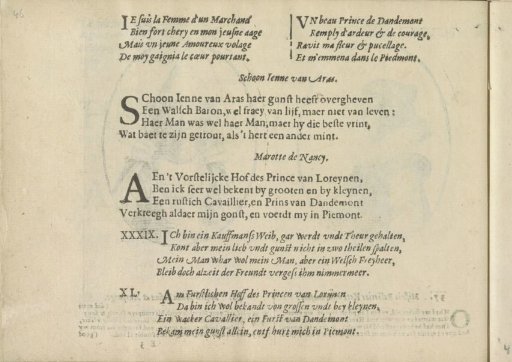 46
IE suis la Femme d'un Marchand
Bien fort chery en mon jeusne aage
Mais vn jeune Amoureux volage
De moy gaignia le cœur pourtant.
VN beau Prince de Dandemont
Remply d'ardeur & de courage,
Ravit ma fleur & pucellage.
Et m'emmena dans le Piedmont.
Schoon Ienne van Aras.
SChoon Ienne van Aras haer gunst heeft overgheven
Een Walsch Baron, wel fraey van lijf, maer niet van leven:
Haer Man was wel haer Man, maer hy die beste vrint,
Wat baet te zijn getrout, als 't hert een ander mint.
Marotte de Nancy.
AEn 't Vorstelijcke Hof des Prince van Loreynen,
Ben ick seer wel bekent by grooten en by kleynen,
Een rustich Cavaillier, en Prins van Dandemont
Verkreegh aldaer mijn gonst, en voerdt my in Piemont.
XXXIX. ICh bin ein Kauffmanss Weib, gar werdt vndt Theur gehalten,
Kont aber mein lieb vndt gunst nicht in zwo theilen spalten,
Mein Man whar wol mein Man, aber ein Welsch Freyheer,
Bleib doch alzeit der Freundt vergess ihm nimmermeer.
XL. Am Furstlichen Hoff des Princen van Lorijnen
Da bin ich wol bekandt von grossen vndt bey kleynen,
Ein wacker Cavallier, ein Furst van Dandemont
Bekam mein gunst allein, entfhurt mich in Piemont.